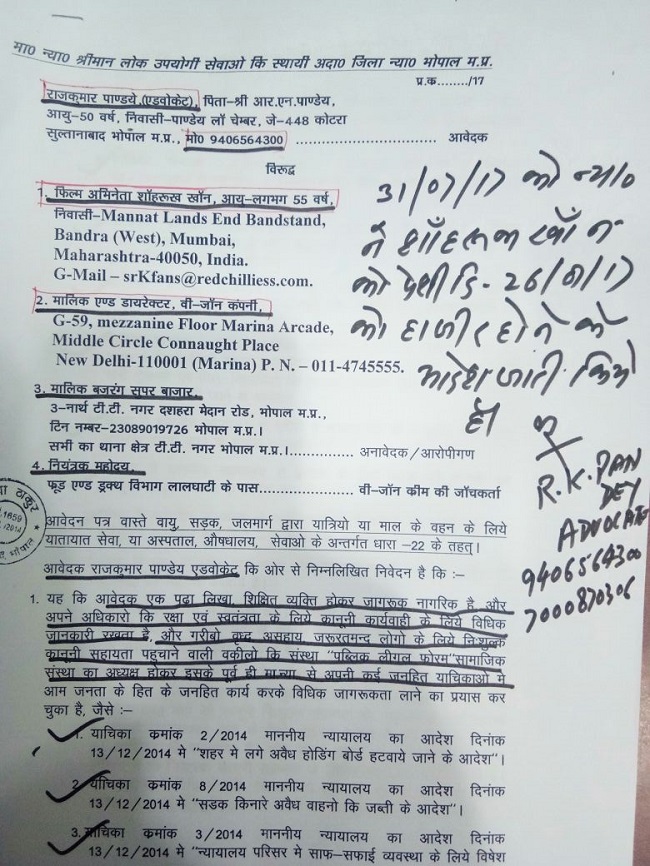 मा0 न्या0 श्रीमान लोक उपयोगी सेवाओ कि स्थायी अदा0 जिला न्या0 भोपाल म.प्र.
प्र.क......../17
राजकुमार पाण्डये,(एडवोकेट), पिता–श्री आर.एन.पाण्डेय,
आयु–50 वर्ष, निवासी–पाण्डेय लॉ चेम्बर, जे–448 कोटरा
सुल्तानाबाद भोपाल म.प्र., मो0 9406564300 ................................ आवेदक
विरूद्ध
1. फिल्म अभिनेता शॉहरूख खॉन, आयु–लगभग 55 वर्ष,
निवासी–Mannat Lands End Bandstand,
Bandra (West), Mumbai,
Maharashtra-40050, India.
G-Mail – srKfans@redchilliess.com.
2. मालिक एण्ड डायरेक्टर, वी–जॉन कंपनी,
G-59, mezzanine Floor Marina Arcade,
Middle Circle Connaught Place
New Delhi-110001 (Marina) P. N. – 011-4745555.
3. मालिक बजरंग सुपर बाजार,
3–नार्थ टी.टी. नगर दशहरा मेदान रोड, भोपाल म.प्र.,
टिन नम्बर–23089019726 भोपाल म.प्र.।
सभी का थाना क्षेत्र टी.टी. नगर भोपाल म.प्र.।............... अनावेदक/आरोपीगण
4. नियंत्रक महोदय,
फूड एण्ड ड्रक्थ विभाग लालघाटी के पास..................... वी–जॉन क्रीम की जॉचकर्ता
31/07/17 को न्या0
ने शॉहरूख खॉन
को पेशी दि- 26/
को हाजीर होने के
आदेश जारी किये
है।
R.K. PAN
DEY
ADVOCATE
9406564300
7000870306
ठाकुर
1659
/2014
भोपाल
आवेदन पत्र वास्ते वायु, सड़क, जलमार्ग द्वारा यात्रियो या माल के वहन के लिये
यातायात सेवा, या अस्पताल, औषधालय, सेवाओ के अन्तर्गत धारा –22 के तहत्।
आवेदक राजकुमार पाण्डेय एडवोकेट कि ओर से निम्नलिखित निवेदन है कि :–
1. यह कि आवेदक एक पढा लिखा, शिक्षित व्यक्ति होकर जागरूक नागरिक है, और
अपने अधिकारो कि रक्षा एवं स्वतंत्रता के लिये कानूनी कार्यवाही के लिये विधिक
जानकारी रखता है, और गरीबो वृद्ध असहाय जरूरतमन्द लोगो के लिये निःशुल्क
कानूनी सहायता पहुचाने वाली वकीलो कि संस्था "पब्लिक लीगल फोरम"सामाजिक
संस्था का अध्यक्ष होकर इसके पूर्व ही मा.न्या से अपनी कई जनहित याचिकाओ मे
आम जनता के हित के जनहित कार्य करके विधिक जागरूकता लाने का प्रयास कर
चुका है, जैसे :–
1. याचिका कमांक 2/2014 माननीय न्यायालय का आदेश दिनांक
13/12/2014 मे "शहर मे लगे अवैध होडिंग बोर्ड हटवाये जाने के आदेश"।
2. याचिका कमांक 8/2014 माननीय न्यायालय का आदेश दिनांक
13/12/2014 मे "सडक किनारे अवैध वाहनो कि जब्ती के आदेश"।
3. याचिका कमांक 3/2014 माननीय न्यायालय का आदेश दिनांक
13/12/2014 मे "न्यायालय परिसर मे साफ–सफाई व्यवस्था के लिये विषेश